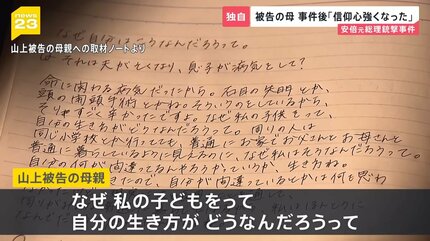 news 23
山上被告の母親への取材ノートより
独自
被告の母 事件後「信仰心強くなった」
安倍元総理銃撃事件
なぜ自分はこうなんだろうって。
それは夫が亡くなり、息子が病気をして?
命に関わる病気だったから。右目の失明とか、
頭の開頭手術とかね。そういうのをしているから、
それはすごく辛かったですよ。なぜ私の子供をって、
自分の生き方がどうなんだろうって。周りの人は
同じ小学校とか行ってても、普通にお家でお父さんとお母さんと
普通に暮らしているように見えるのに、なぜ私はそうなんだろうって。
自分の何が間違ってるんだろうかっていうか、生き方ね。
自分が間違っているとかは何も思わ
山上被告の母親
なぜ 私の子どもをって
自分の生き方が どうなんだろうって